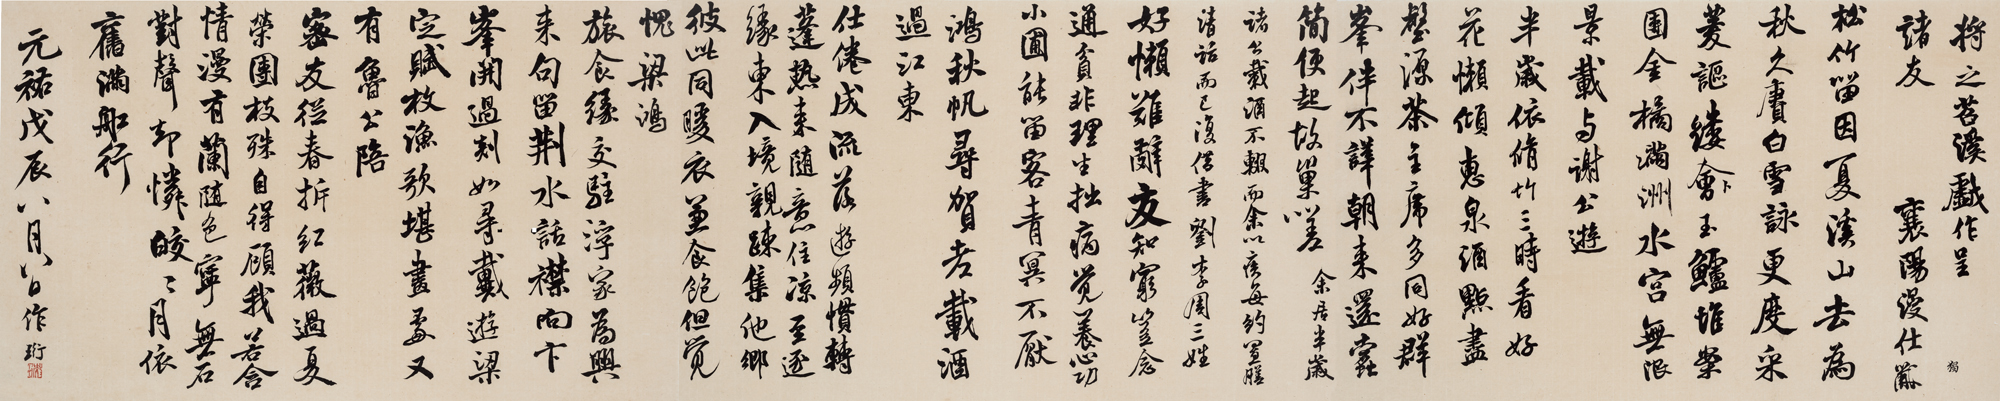 將之苕溪戲作呈
諸友　襄陽漫仕黻
松竹留因夏溪山去為
秋久賡白雪詠更度采
菱謳縷會玉鱸堆案
團金橘滿洲水宮無限
景載与謝公遊
半歲依脩竹三時看好
花懶傾惠泉酒點盡
壑源茶主席多同好群
峯伴不譁朝來還蠹
簡便起故巢嗟　余居半歲
諸公載酒不輟而余以疾每約置膳
清話而已復借書劉李周三姓
好懶難辭友知窮豈念
通貧非理生拙病覺養心功
小圃能留客青冥不厭
鴻秋帆尋賀老載酒
過江東
仕倦成流落遊頻慣轉
蓬熱來隨意住涼至逐
緣東入境親踈集他鄉
彼此同暖衣並食飽但覺
愧梁鴻
旅食緣交駐浮家為興
来句留荆水話襟向卞
峯開過剡如尋戴遊梁
定賦枚漁歌堪畫處又
有魯公陪
密友從春拆紅薇過夏
榮團枝殊自得顧我若含
情漫有蘭隨色寧無石
對聲却憐皎〻月依
舊滿船行
元祐戊辰八月八日作 珩